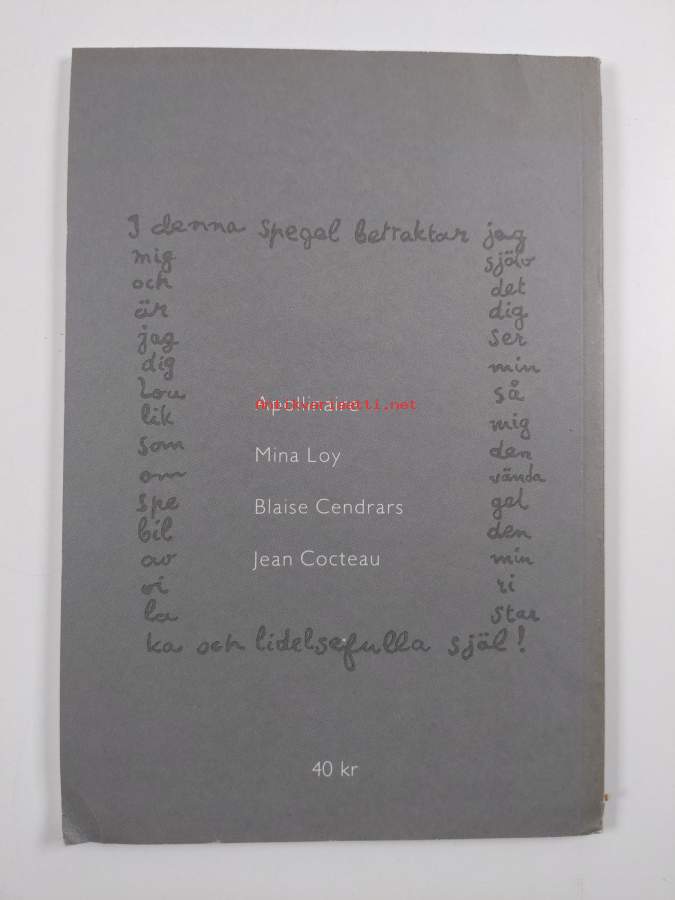 I denna spegel betraktar jag
mig själv
och det
är dig
jag ser
dig min
Lou så
lik mig
som den
om vända
spe gel
bil den
av min
vi ri
la star
ka och lidelsefulla själ!
Apollinaire
Antikvariaatti.net
Mina Loy
Blaise Cendrars
Jean Cocteau
40 kr